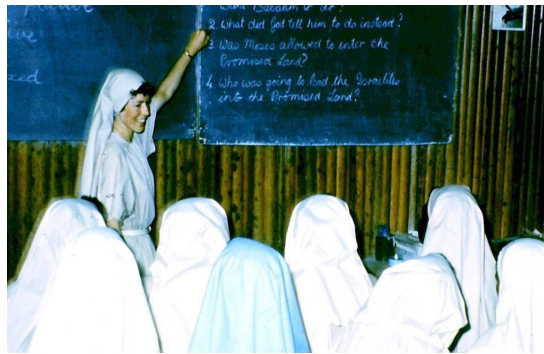 ive
xed
want Balaam to do?
2 What did God tell him to do instead?
3 Was Moses allowed to enter the
Promised Land?
4 Who was going to lead the Israelites
into the Promised Land?